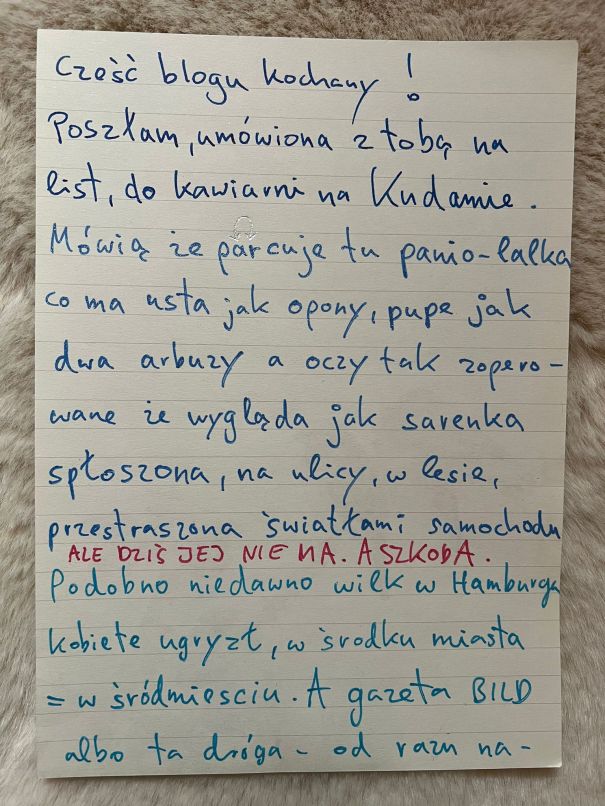 Cześć blogu kochany!
Poszłam, umówiona z tobą na
list, do kawiarni na Kudamie.
Mówią że parcuje tu panio-lalka
co ma usta jak opony, pupe jak
dwa arbuzy a oczy tak zopero-
wane że wygląda jak sarenka
spłoszona, na ulicy, w lesie,
przestraszona światłami samochodu
ALE DZIŚ JEJ NIE MA. A SZKODA.
Podobno niedawno wilk w Hamburgu
kobiete ugryzł, w środku miasta
= w śródmiesciu. A gazeta BILD
albo ta dróga - od razu na-